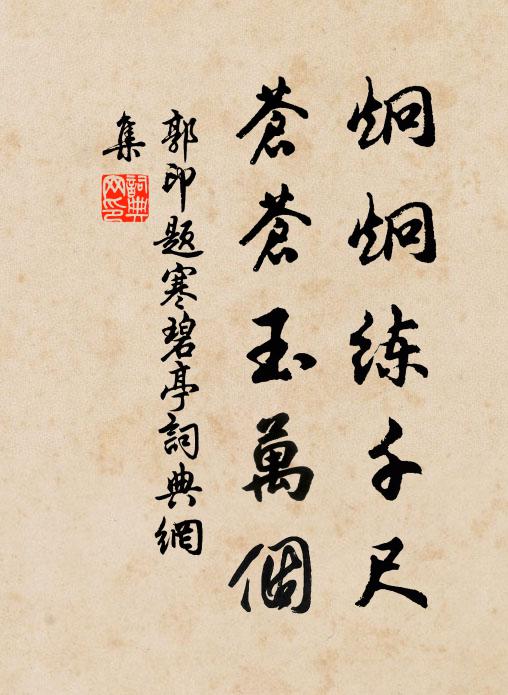 炯炯練千尺
蒼蒼玉萬個
郭印題寒碧亭詞典網
集
詞典
网印